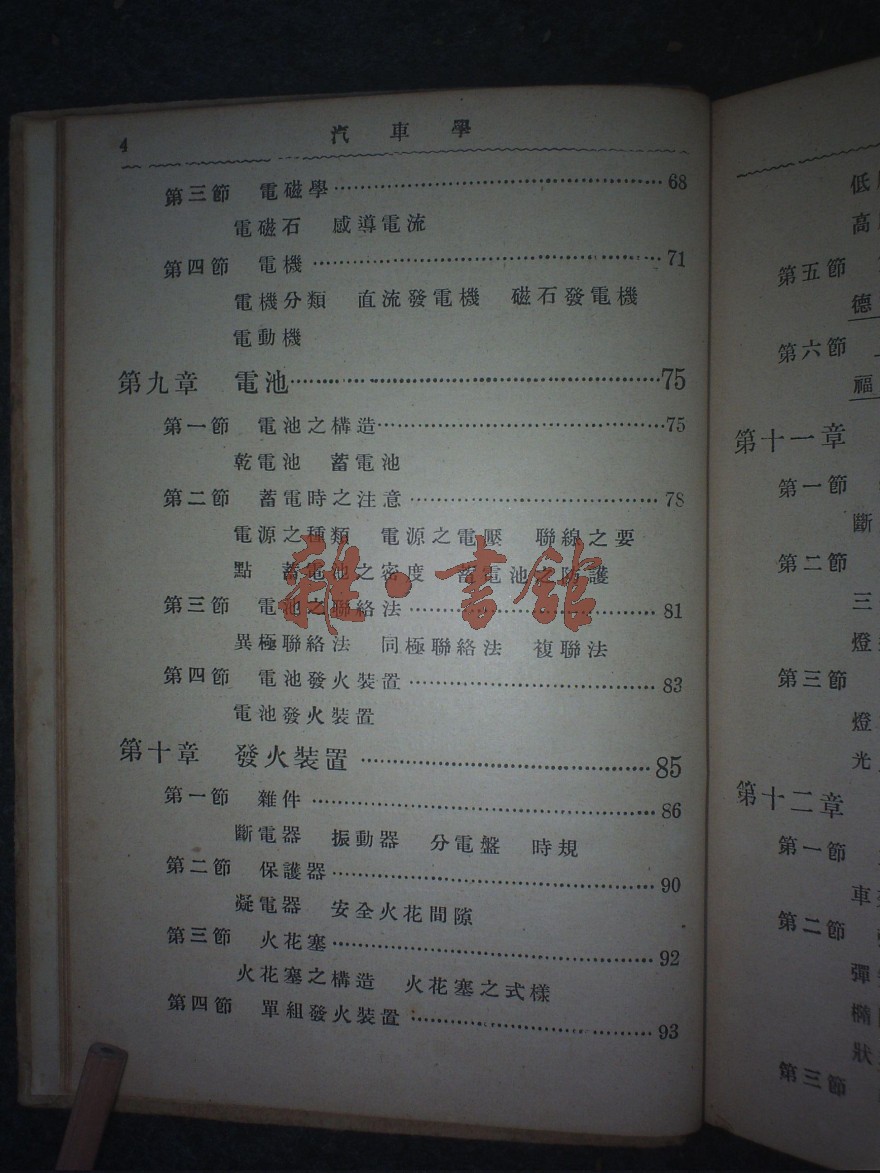 4 汽車學
第三節 電磁學 68
電磁石 感導電流
第四節 電機 71
電機分類 直流發電機 磁石發電機
電動機
第九章 電池 75
第一節 電池之構造 75
乾電池 蓄電池
第二節 蓄電時之注意 78
電源之種類 電源之電壓 聯線之要
點 蓄電池之密度 蓄電池之防護
雜·書館
第三節 電池之聯絡法 81
異極聯絡法 同極聯絡法 複聯法
第四節 電池發火裝置 83
電池發火裝置
第十章 發火裝置 85
第一節 雜件 86
斷電器 振動器 分電盤 時規
第二節 保護器 90
凝電器 安全火花間隙
第三節 火花塞 92
火花塞之構造 火花塞之式樣
第四節 單組發火裝置 93
低
高
第五節
德
第六節
福
第十一章
第一節
斷
第二節
三
燈
第三節
燈
光
第十二章
第一節
車
第二節
彈
橢
狀
第三節